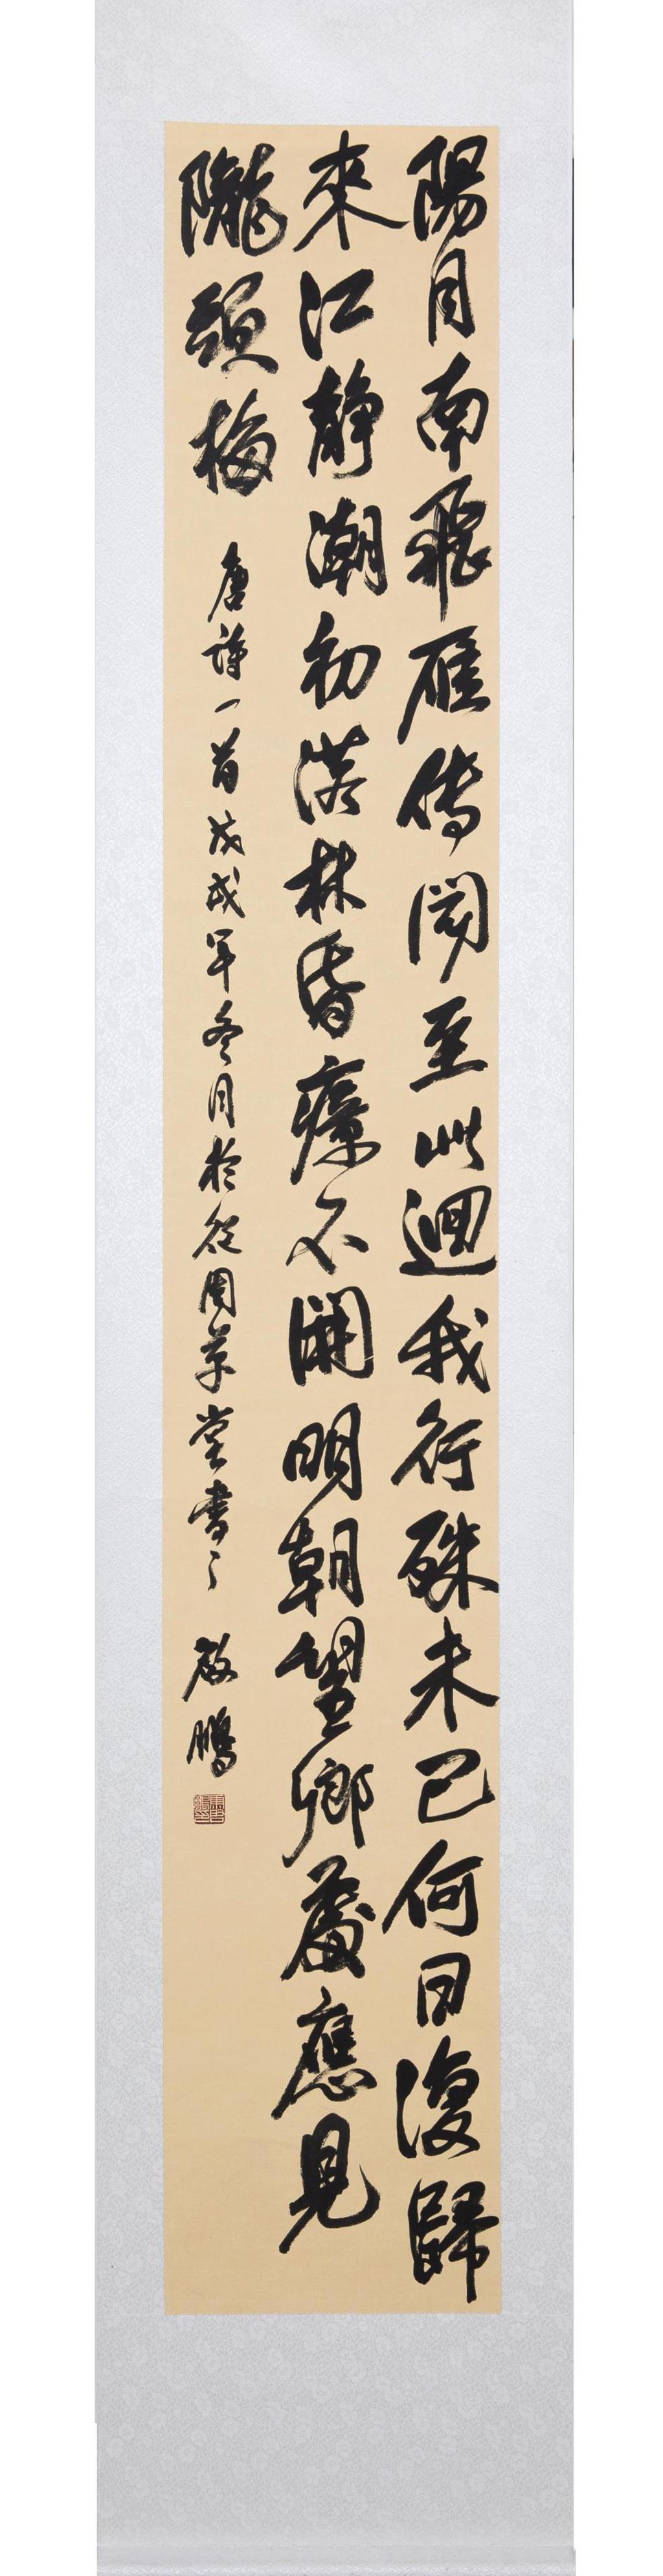 陽月南飛雁傳聞至此迴我行殊未已何日復歸
來江靜潮初落林昏瘴不開明朝望鄉處應見
隴頭梅 唐詩一首戊戌年冬月於從周草堂書之 啟鵬